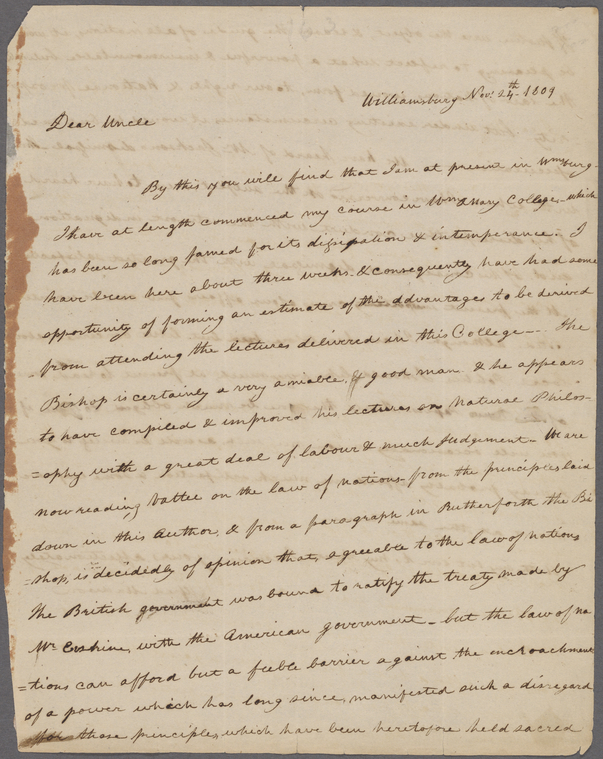 Williamsburg Novr. 24th- 1809
Dear Uncle
By this you will find that I am at present in Wmsburg-
I have at length commenced my course in Wm & Mary College, which
has been so long famed for its dissipation & intemperance. I
have been here about three weeks. & consequently have had some
opportunity of forming an estimate of the advantages to be derived
from attending the lectures delivered in this College -- The
Bishop is certainly a very amiable, & good man & he appears
to have compiled & improved his lectures on Natural Philos-
=ophy with a great deal of labour & much Judgement - We are
now reading Vattel on the law of nations- from the principles laid
down in this Author, & from a paragraph in Rutherforth the Bi
=shop, is decidedly of opinion that, agreeable to the law of nations
the British government was bound to ratify the treaty made by
Mr. Erskine, with the American government - but the law of na
=tions can afford but a feeble barrier against the encroachment
of a power which has long since, manifested such a disregard
for those principles, which have been heretofore held sacred